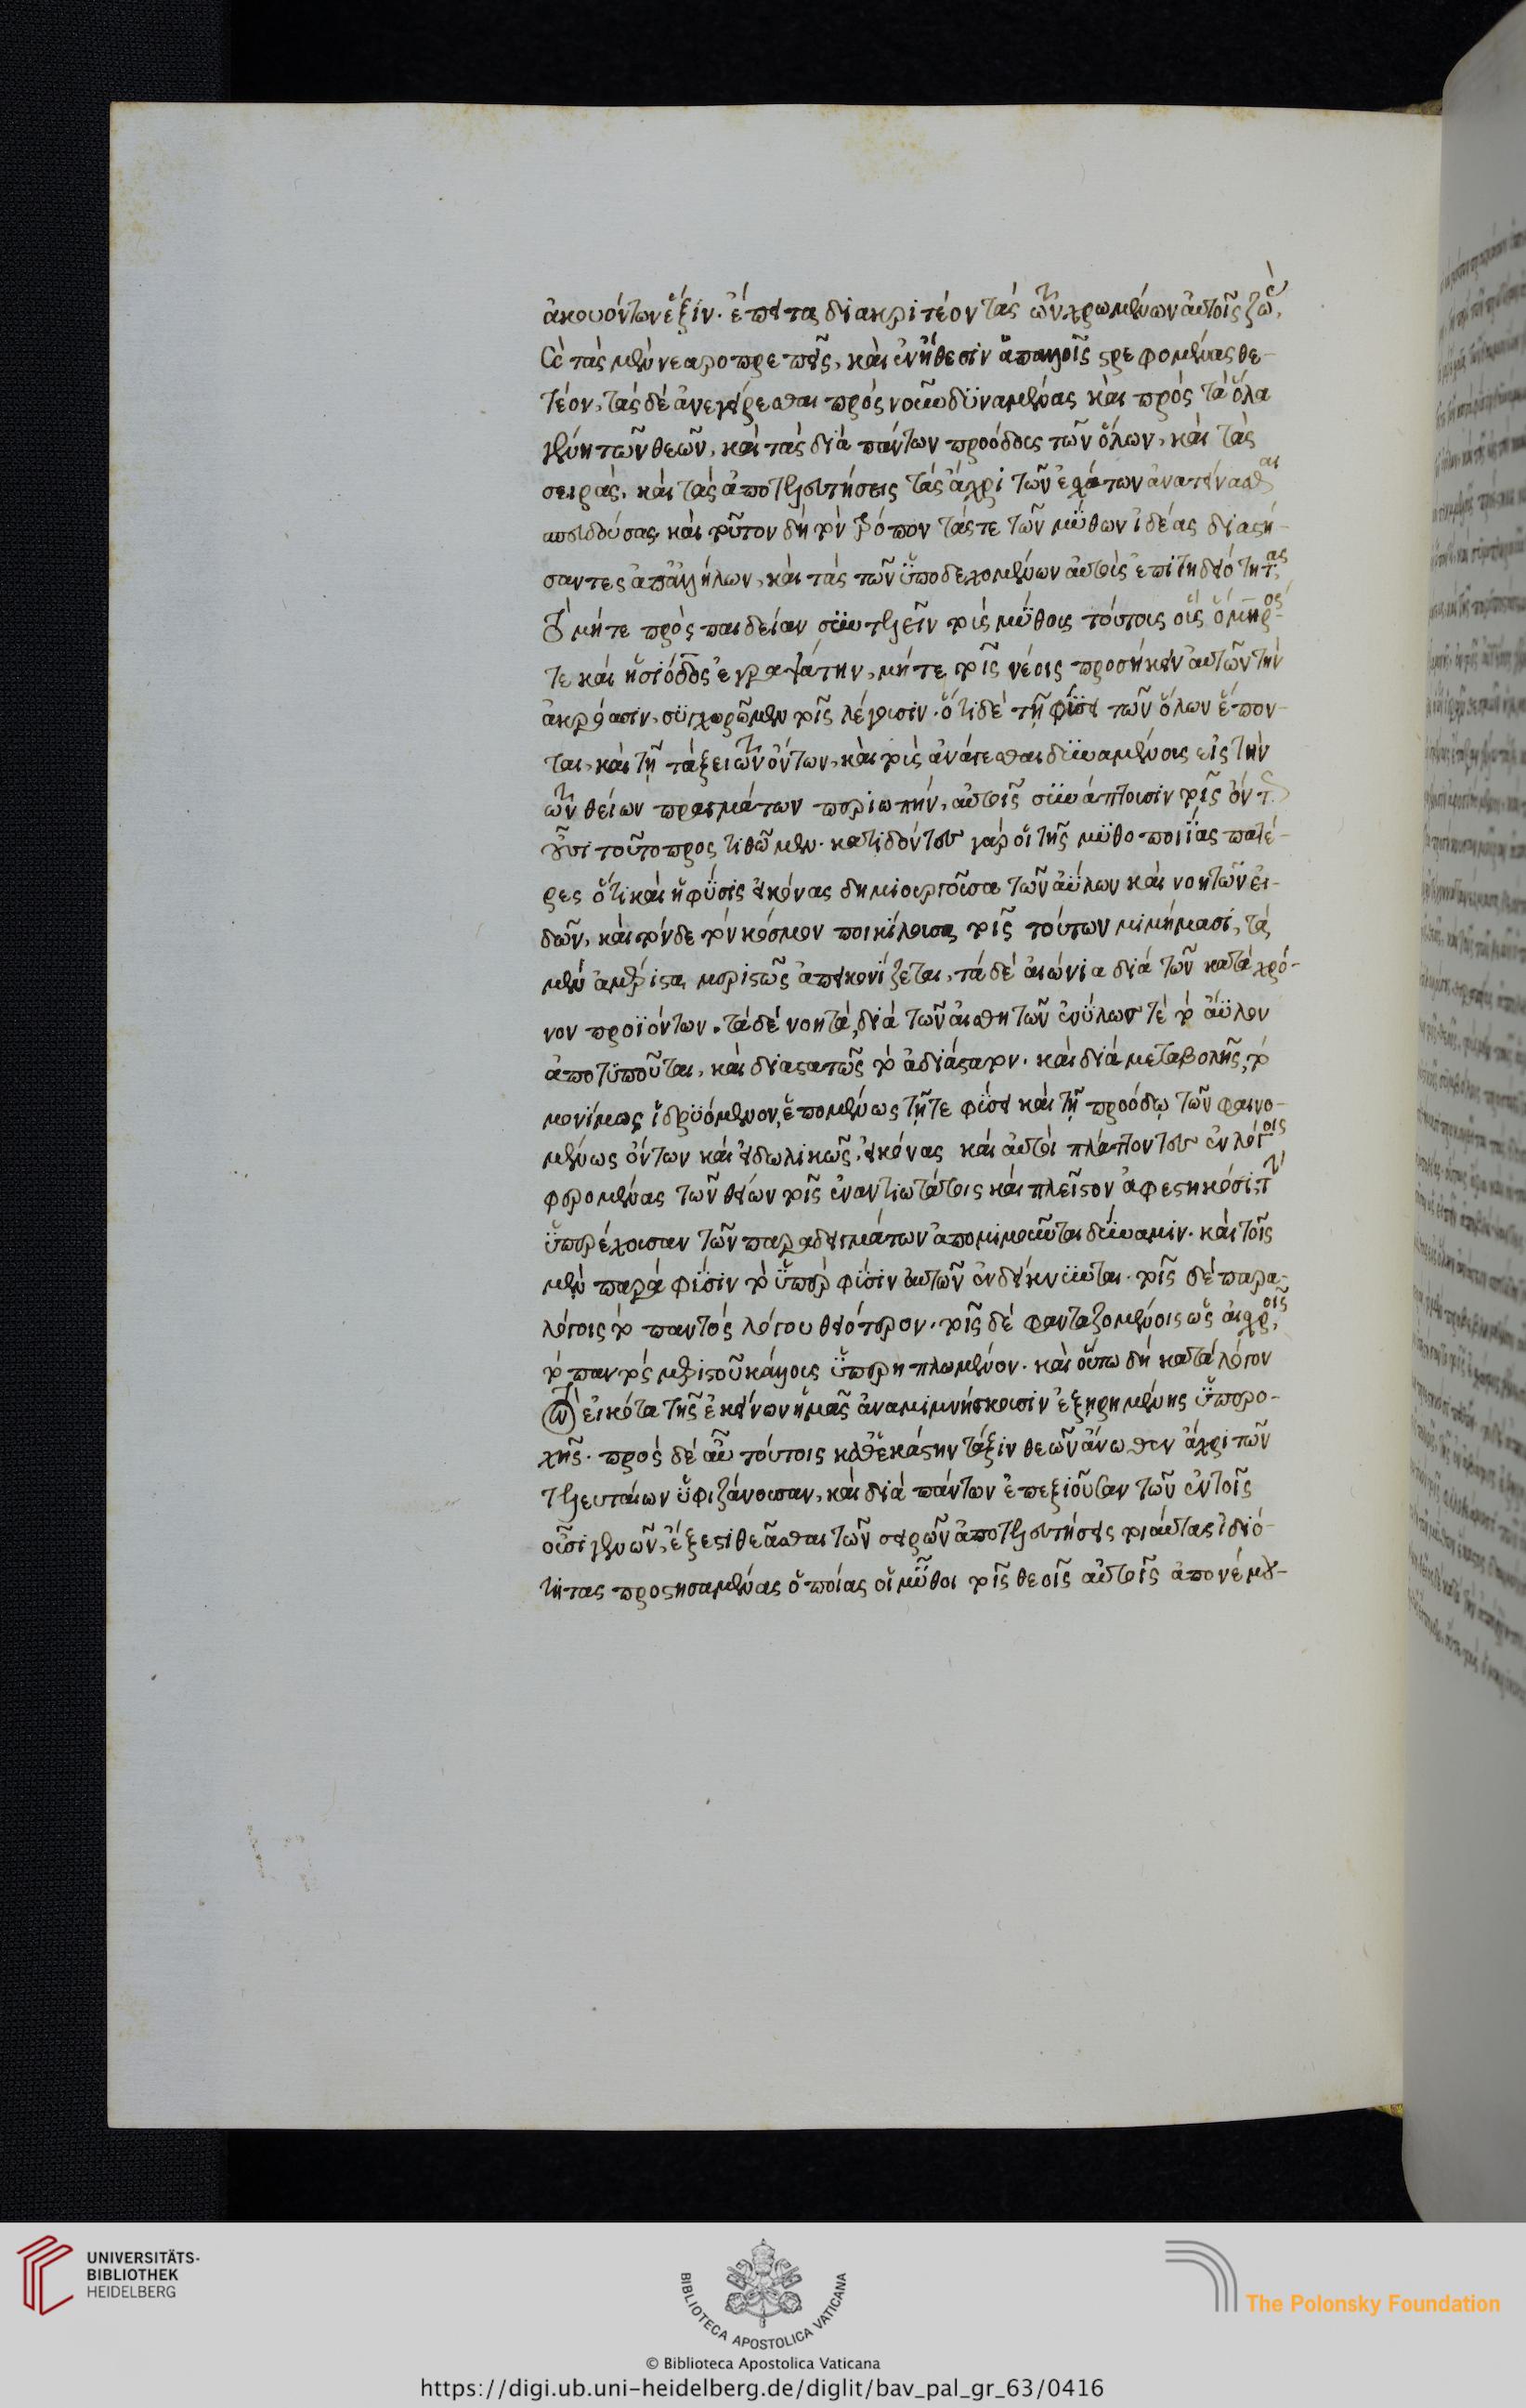 ἀκουόντων ἕξιν. ἔπειτα διακριτέον τὰς τῶν χρωμένων αὐτοῖς ζωὰς,
καὶ τὰς μὲν νεαροπρεπεῖς, καὶ ἐν ἤθεσιν ἁπαλοῖς τρεφομένας θε-
τέον, τὰς δὲ ἀνεγείρεσθαι πρὸς νοῦν δυναμένας καὶ πρὸς τὰ ὅλα
γένη τῶν θεῶν, καὶ τὰς διὰ πάντων προόδους τῶν ὄλων, καὶ τὰς
σειρὰς, καὶ τὰς ἀποτελευτήσεις τὰς ἄχρι τῶν ἐσχάτων ἀνατείνασθαι
σπευδούσας. καὶ τοῦτον δὴ τὸν τρόπον τάς τε τῶν μύθων ἰδέας διαστή-
σαντες ἀπ' ἀλλήλων, καὶ τὰς τῶν ὑποδεχομένων αὐτοὺς ἐπιτηδειότητας,
τὸ μήτε πρὸς παιδείαν συντελεῖν τοὺς μύθους τούτους οὓς ὅμηρός
τε καὶ ἡσίοδος ἐγραψάτην, μήτε τοῖς νέοις προσήκειν αὐτῶν τὴν
ἀκρόασιν, συγχωρῶμεν τοῖς λέγουσιν. ὅτι δὲ τῇ φύσει τῶν ὅλων ἕπον-
ται, καὶ τῇ τάξει τῶν ὄντων, καὶ τοὺς ἀνάγεσθαι δυναμένους εἰς τὴν
τῶν θείων πραγμάτων περιωπὴν, αὐτοῖς συνάπτουσιν τοῖς ὄντως
οὖσι τοῦτο προστιθῶμεν. κατιδόντες γὰρ οἱ τῆς μυθοποιίας πατέ-
ρες ὅτι καὶ ἡ φύσις εἰκόνας δημιουργοῦσα τῶν ἀΰλων καὶ νοητῶν εἰ-
δῶν, καὶ τόνδε τὸν κόσμον ποικίλουσα τοῖς τούτων μιμήμασι, τὰ
μὲν ἀμέριστα μεριστῶς ἀπεικονίζεται, τὰ δὲ αἰώνια διὰ τῶν κατὰ χρό-
νον προϊόντων, τὰ δὲ νοητὰ, διὰ τῶν αἰσθητῶν ἐνύλως τὲ τὸ ἄϋλον
ἀποτυποῦται, καὶ διαστατῶς τὸ ἀδιάστατον. καὶ διὰ μεταβολῆς, τὸ
μονίμως ἱδρυόμενον, ἑπομένως τῇ τε φύσει καὶ τῇ προόδῳ τῶν φαινο-
μένως ὄντων καὶ εἰδωλικῶς, εἰκόνας καὶ αὐτοὶ πλάττοντες ἐν λόγοις
φερομένας τῶν θείων τοῖς ἐναντιωτάτοις καὶ πλεῖστον ἀφεστηκόσι, τὴν
ὑπερέχουσαν τῶν παραδειγμάτων ἀπομιμοῦνται δύναμιν. καὶ τοῖς
μὲν παρὰ φύσιν τὸ ὑπὲρ φύσιν αὐτῶν ἐνδείκνυνται. τοῖς δὲ παρα-
λόγοις τὸ παντὸς λόγου θειότερον. τοῖς δὲ φανταζομένοις ὡς αἰσχροῖς,
τὸ παντὸς μεριστοῦ κάλλους ὑπερηπλωμένον. καὶ οὕτω δὴ κατὰ λόγον
τὸν εἰκότα τῆς ἐκείνων ἡμᾶς ἀναμιμνήσκουσιν ἐξῃρημένης ὑπερο-
χῆς. πρὸς δὲ αὖ τούτοις καθ' ἑκάστην τάξιν θεῶν ἄνωθεν ἄχρι τῶν
τελευταίων ὑφιζάνουσαν, καὶ διὰ πάντων ἐπεξιοῦσαν τῶν ἐν τοῖς
οὖσι γενῶν, ἔξεστι θεᾶσθαι τῶν σειρῶν ἀποτελευτήσεις τοιαύτας ἰδιό-
τητας προστησαμένας ὁποίας οἱ μῦθοι τοῖς θεοῖς αὐτοῖς ἀπονέμου-
UNIVERSITÄTS-
BIBLIOTHEK
HEIDELBERG
BIBLIOTECA APOSTOLICA VATICANA
The Polonsky Foundation
© Biblioteca Apostolica Vaticana
https://digi.ub.uni-heidelberg.de/diglit/bav_pal_gr_63/0416